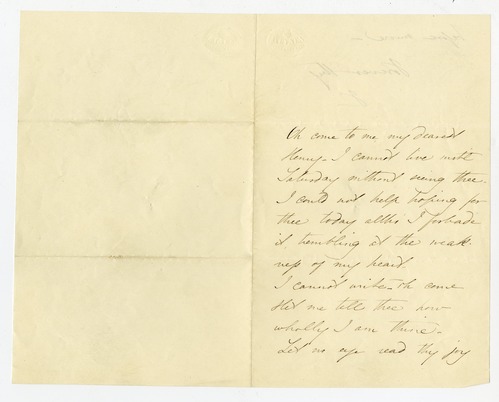 Oh come to me my dearest
Henry. I cannot live until
Saturday without seeing thee.
I could not help hoping for
thee today altho I forbade
it trembling at the weak-
ness of my heart.
I cannot write - oh come
let me tell thee now
wholly I am thine -
Let no eye read thy joy